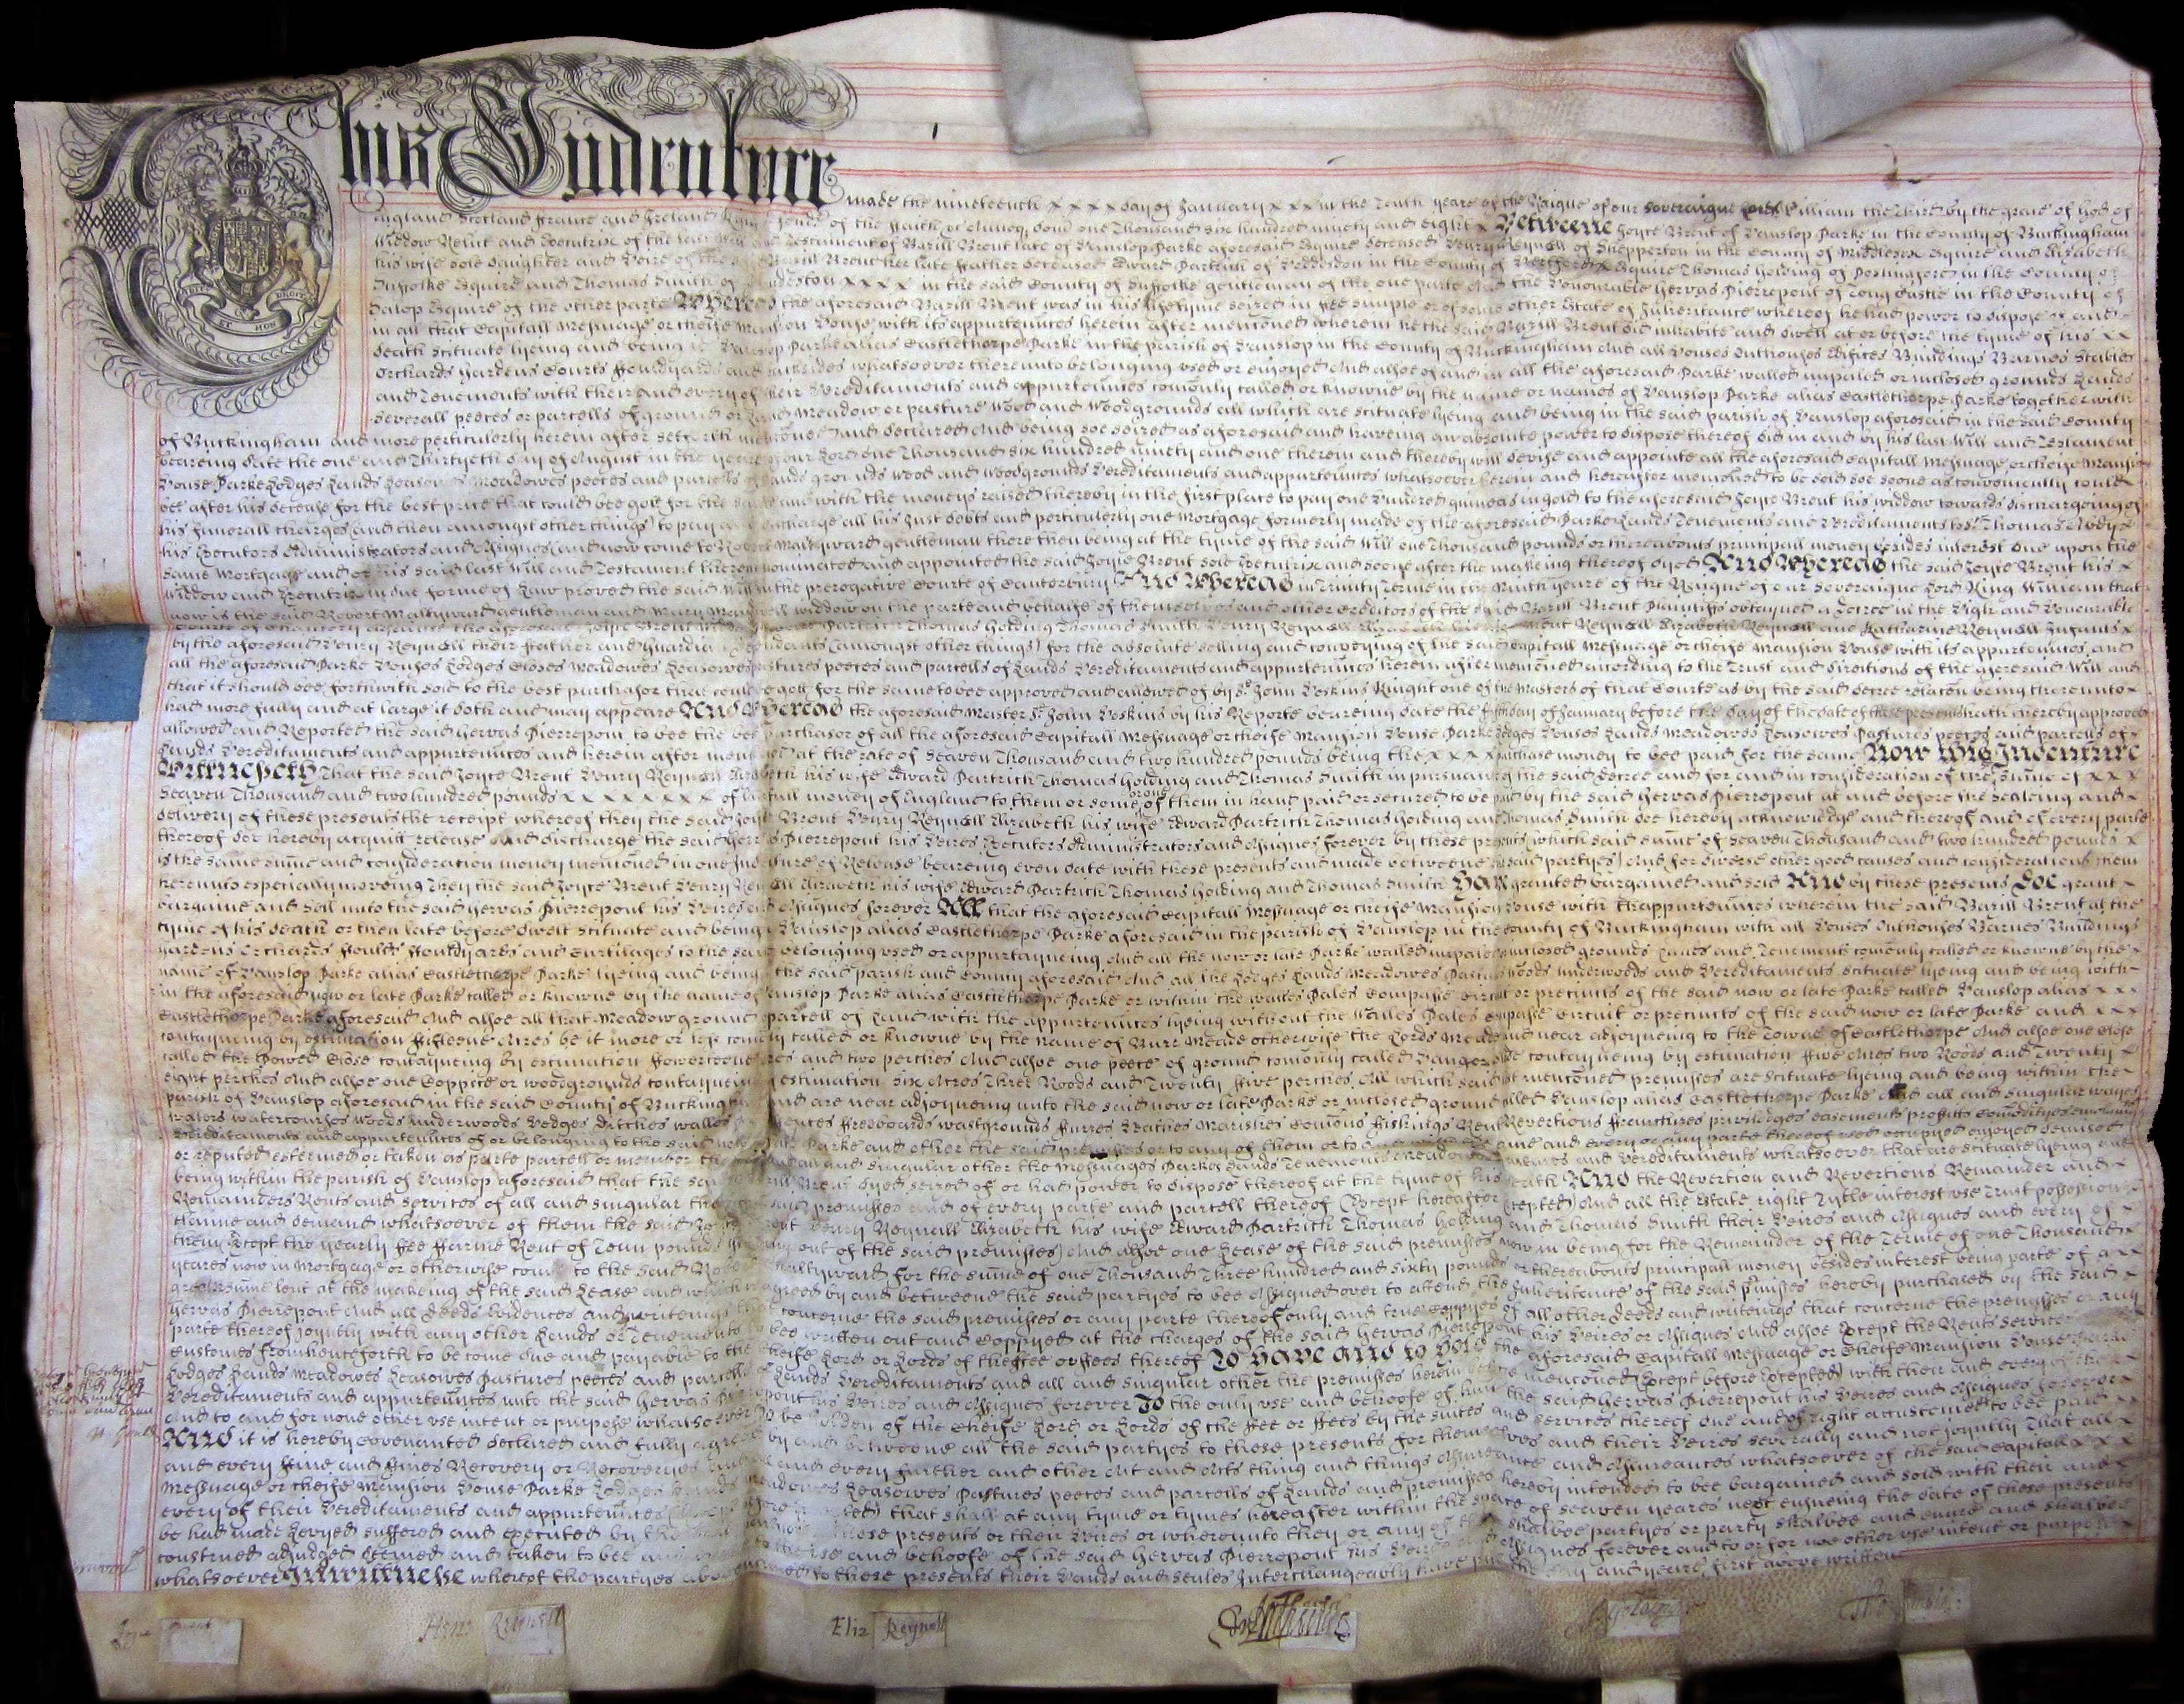 This Indenture
made the nineteenth x x x x day of January x x x in the Tenth yeare of the Raigne of our Sovereigne Lord William the Third by the grace of God of
England Scotland France and Ireland King of the Faith &c Annoq Dom one Thousand six hundred ninety and eight x Betweene Joyce Brent of Hanslop Parke in the County of Buckingham
Widdow Relict and Executrix of the last Will and Testament of Barill Brent late of Hanslop Parke aforesaid Esquire deceased Henry Reynell of Shepperton in the County of Middlesex Esquire and Elizabeth
his wife sole daughter and Heire of the said Barill Brent her late Father deceased Edward Partrich of in the County of Esquire Thomas Holding of in the County of
Suffolke Esquire and Thomas Smith of x x x x in the said County of Suffolke gentleman of the one parte And the Honourable Gervas Pierrepont of Tong Castle in the County of
Salop Esquire of the other parte Whereas the aforesaid Barill Brent was in his lifetyme seized in fee simple or of some other Estate of Inheritance whereof he had power to dispose of and
in all that Capitall Messuage or cheife Mansion House with its appurtennces herein after mencõned wherein he the said Barill Brent did inhabite and dwell at or before the tyme of his x x
death scituate lyeing and being in Hanslop Parke alias Castlethorpe Parke in the parish of Hanslop in the County of Buckingham And all Houses Outhouses Edifices Buildings Barnes Stables
Orchards Gardens Courts Fouldyards and whatsoever thereunto belonging used or enjoyed And alsoe of and in all the aforesaid Parke walled impaled or inclosed grounds Lands
and Tenements with their and every of their Hereditaments and appurtennces comonly called or knowne by the name or names of Hanslop Parke alias Castlethorpe Parke together with
severall peeces or parcells of ground or Land Meadow or pasture Wood and Woodgrounds all which are scituate lyeing and being in the said parish of Hanslop aforesaid in the said County
of Buckingham and more perticulerly herein after sett forth mencõned and declared And being soe seized as aforesaid and haveing an absolute power to dispose thereof did in and by his last Will and Testament
beareing date the one and Thirtyeth day of August in the yeare of our Lord one Thousand six hundred ninety and one therein and thereby will devise and appointe all the aforesaid Capitall Messuage or cheife Mansion
House Parke Lodges Lands Leasowes Meadowes peeces and parcells of Lands grounds Wood and Woodgrounds Hereditaments and appurtennces whatsoever herein and hereafter mencõned to be sold soe soone as conveniently could
bee after his decease for the best price that could bee gott for the same and with the moneys raised thereby in the first place to pay one Hundred guineas in gold to the aforesaid Joyce Brent his widdow towards dischargeing of
his funerall charges (and then amongst other things) to pay and discharge all his just debts and perticulerly one Mortgage formerly made of the aforesaid Parke Lands Tenements and Hereditaments to Thomas
his Executors Administrators and Assignes (and now come to Robert Maltyward gentleman there then being at the tyme of the said Will one Thousand pounds or thereabouts principall money besides interest due upon the
same Mortgage and of his said last Will and Testament therein nominated and appointed the said Joyce Brent sole Executrix and soone after the makeing thereof dyed And Whereas the said Joyce Brent his x
widdow and Executrix in due forme of Law proved the said Will in the prerogative Courte of Canterbury And Whereas in Trinity Terme in the Ninth yeare of the Raigne of our Sovereigne Lord King William that
now is the said Robert Maltyward gentleman and Mary widdow on the parte and behalfe of themselves and other Creditors of the said Barill Brent Plaintiffs obteyned a decree in the High and Honourable
Courte of Chancery against the aforesaid Joyce Brent Edward Partrich Thomas Holding Thomas Smith Henry Reynell Elizabeth his wife Brent Reynell Elizabeth Reynell and Katharine Reynell Infants x
by the aforesaid Henry Reynell their Father and Guardian defendants (amongst other things) for the absolute selling and conveying of the said Capitall Messuage or cheife Mansion House with its appurtennces and
all the aforesaid Parke Houses Lodges Closes Meadowes Leasowes pastures peeces and parcells of Lands Hereditaments and appurtennces herein after mencõned according to the Trust and directions of the aforesaid Will and
that it should bee forthwith sold to the best purchasor that could be gott for the same to bee approved and allowed of by Sr John Hoskins Knight one of the Masters of that Courte as by the said decree relacõn being thereunto x
had more fully and at large it doth and may appeare And Whereas the aforesaid Master Sr John Hoskins by his Reporte beareing date the day of January before the day of the date of these presents hath thereby approved
allowed and Reported the said Gervas Pierrepont to bee the best purchasor of all the aforesaid Capitall Messuage or cheife Mansion House Parke Lodges Houses Lands Meadowes Leasowes Pastures peeces and parcells of x
Lands Hereditaments and appurtennces and herein after mencõned at the rate of Seaven Thousand and two hundred pounds being the x x x x purchase money to bee paid for the same Now this Indenture
Witnesseth That the said Joyce Brent Henry Reynell Elizabeth his wife Edward Partrich Thomas Holding and Thomas Smith in pursuance of the said decree and for and in consideracõn of the summe of x x x
Seaven Thousand and two hundred pounds x x x x x x x x of lawfull money of England to them or some or one of them in hand paid or secured to be paid by the said Gervas Pierrepont at and before the sealeing and x
delivery of these presents the receipt whereof they the said Joyce Brent Henry Reynell Elizabeth his wife Edward Partrich Thomas Holding and Thomas Smith doe hereby acknowledge and thereof and of every parte
thereof doe hereby acquitt release and discharge the said Gervas Pierrepont his Heires Executors Administrators and Assignes forever by these presents (which said summe of Seaven Thousand and two hundred pounds x
is the same summe and consideracõn money mencõned in one Indenture of Release beareing even date with these presents and made betweene the said partyes) And for diverse other good causes and consideracõns them
hereunto especially moveing They the said Joyce Brent Henry Reynell Elizabeth his wife Edward Partrich Thomas Holding and Thomas Smith Have granted bargained and sold And by these presents Doe grant x
bargaine and sell unto the said Gervas Pierrepont his Heires and Assignes forever All that the aforesaid Capitall Messuage or cheife Mansion House with thappurtennces wherein the said Barill Brent at the
tyme of his death or then late before dwelt scituate and being in Hanslop alias Castlethorpe Parke aforesaid in the parish of Hanslop in the County of Buckingham with all Houses Outhouses Barnes Buildings
Gardens Orchards Foulds Fouldyards and Curtilages to the same belonging used or appurtayneing And all the now or late Parke walled impaled or inclosed grounds Lands and Tenements comonly called or knowne by the x
name of Hanslop Parke alias Castlethorpe Parke lyeing and being in the said parish and County aforesaid And all the Lodges Lands Meadowes Pastures Woods Underwoods and Hereditaments scituate lyeing and being with-
in the aforesaid now or late Parke called or knowne by the name of Hanslop Parke alias Castlethorpe Parke or within the walles Pales Compasse Circuit or precincts of the said now or late Parke called Hanslop alias x x x
Castlethorpe Parke aforesaid And alsoe all that Meadow ground parcell of Land with the appurtennces lyeing without the Walles Pales Compasse Circuit or precincts of the said now or late Parke and x x x
containyng by estimation Fifteene Acres be it more or lesse comonly called or knowne by the name of Burr Meade otherwise the Lords Meade and near adjoyneing to the Towne of Castlethorpe And alsoe one Close
called the Close containyng by estimation Fowerteene Acres and two perches And alsoe one peece of ground comonly called containyng by estimation Five Acres two Roods and Twenty x
eight perches And alsoe one Coppice or woodgrounds containyng by estimation Six Acres Three Roods and Twenty five perches All which said last mencõned premisses are scituate lyeing and being within the
parish of Hanslop aforesaid in the said County of Buckingham and are near adjoyneing unto the said now or late Parke or inclosed ground called Hanslop alias Castlethorpe Parke And all and singular wayes
waters watercourses Woods Underwoods Hedges ditches walles Fences Freeboards wastgrounds Furzes Heathes Marishes Comons Fishings Rents Revertions Franchises priviledges easements proffitts Comodityes
Hereditaments and appurtennces of or belonging to the said now or late Parke and other the said premisses or to any of them or to and every or any parte thereof used occupyed enjoyed demised
or reputed esteemed or taken as parte parcell or member and all and singular other the Messuages Parkes Lands Tenements Meadowes and Hereditaments whatsoever that are scituate lyeing and
being within the parish of Hanslop aforesaid that the said Barill Brent dyed seized of or had power to dispose thereof at the tyme of his death And the Revertion and Revertions Remainder and x
Remainders Rents and services of all and singular the said premisses and of every parte and parcell thereof (Except hereafter excepted) And all the Estate right Tytle interest use Trust possession
Clayme and demand whatsoever of them the said Joyce Brent Henry Reynell Elizabeth his wife Edward Partrich Thomas Holding and Thomas Smith their Heires and Assignes and every of x
them (Except the yearly Fee Farme Rent of Tenn pounds out of the said premisses) And alsoe one Lease of the said premisses now in being for the Remainder of the Terme of one Thousand x
yeares now in Mortgage or otherwise come to the said Robert Maltyward for the summe of one Thousand Three hundred and sixty pounds or thereabouts principall money besides interest being parte of a x x
greater summe lent at the makeing of the said Lease and which is agreed by and betweene the said partyes to bee Assigned over to attend the Inheritance of the said premisses hereby purchased by the said
Gervas Pierrepont And all deeds Evidences and writeings that concerne the said premisses or any parte thereof only and true Coppyes of all other deeds and writeings that concerne the premisses or any
parte thereof joyntly with any other Lands or Tenements to bee written out and Coppyed at the charges of the said Gervas Pierrepont his Heires or Assignes And alsoe Except the Rents service
Customes from henceforth to become due and payable to the Cheife Lord or Lords of the fee or fees thereof To Have and to Hold the aforesaid Capitall Messuage or Cheife Mansion House Parke
Lodges Lands Meadowes Leasowes Pastures peeces and parcells of Lands Hereditaments and all and singular other the premisses herein before mencõned (Except before Excepted) with their and every of their
Hereditaments and appurtennces unto the said Gervas Pierrepont his Heires and Assignes forever To the only use and behoofe of him the said Gervas Pierrepont his Heires and Assignes forever
And to and for none other use intent or purpose whatsoever To be holden of the Cheife Lord or Lords of the fee or fees by the suites and services thereof due and of right accustomed to bee paid x x
And it is hereby Covenanted declared and fully agreed by and betweene all the said partyes to these presents for themselves and their Heires severally and not joyntly That all x
and every Fine and Fines Recovery or Recoveryes and all and every further and other Act and Acts thing and things Assurance and Assurances whatsoever of the said Capitall x x x
Messuage or cheife Mansion House Parke Lodges Lands Meadowes Leasowes Pastures peeces and parcells of Lands and premisses hereby intended to bee bargained and sold with their and x
every of their Hereditaments and appurtennces (Except before excepted) that shall at any tyme or tymes hereafter within the space of seaven yeares next ensueing the date of these presents
be had made Levyed suffered and executed by the these presents or their Heires or whereunto they or any of them shalbee partyes or party shalbee and enure and shalbee
construed adjudged deemed and taken to bee to the use and behoofe of the said Gervas Pierrepont his Heires and Assignes forever and to or for noe other use intent or purpose
whatsoever In Witnesse whereof the partyes above named to these presents their Hands and Seales Interchangeably have putt the day and yeare first above written
Joyce Brent Henr: Reynell Eliz Reynell